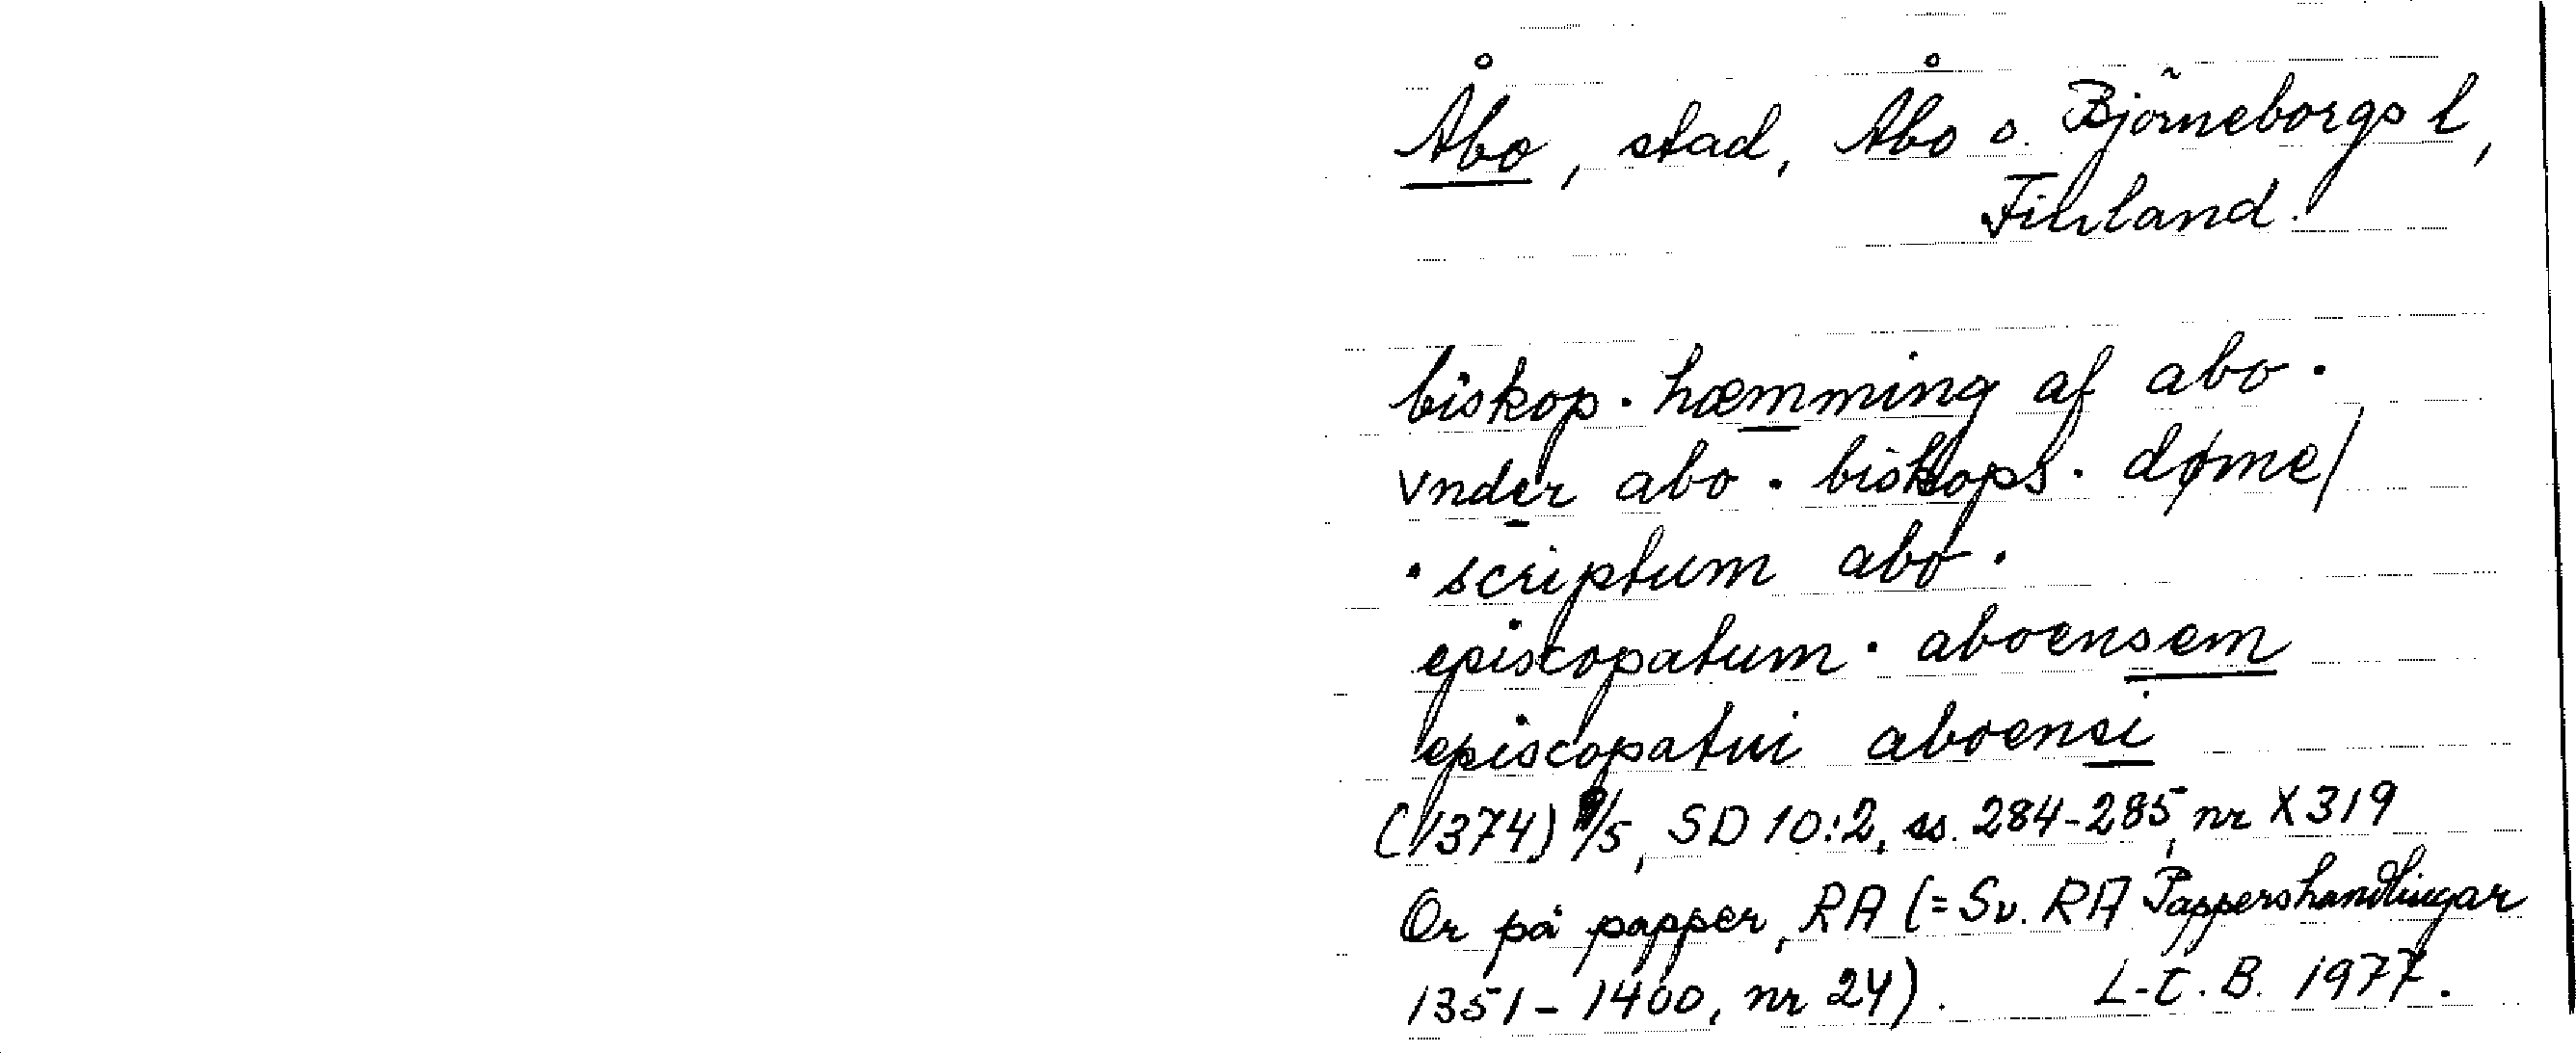 Åbo, stad, Åbo o. Björneborgs l,
Finland.
biskop · hæmming af abo ·
vnder abo · biskops · døme/
· scriptum abo ·
episcopatum · aboensem
episcopatui aboensi
(1374) 9/5, SD 10:2, ss. 284-285, nr X 319
Or på papper, RA (= Sv. RA Pappershandlingar
1351-1400, nr 24). L-E. B. 1977.